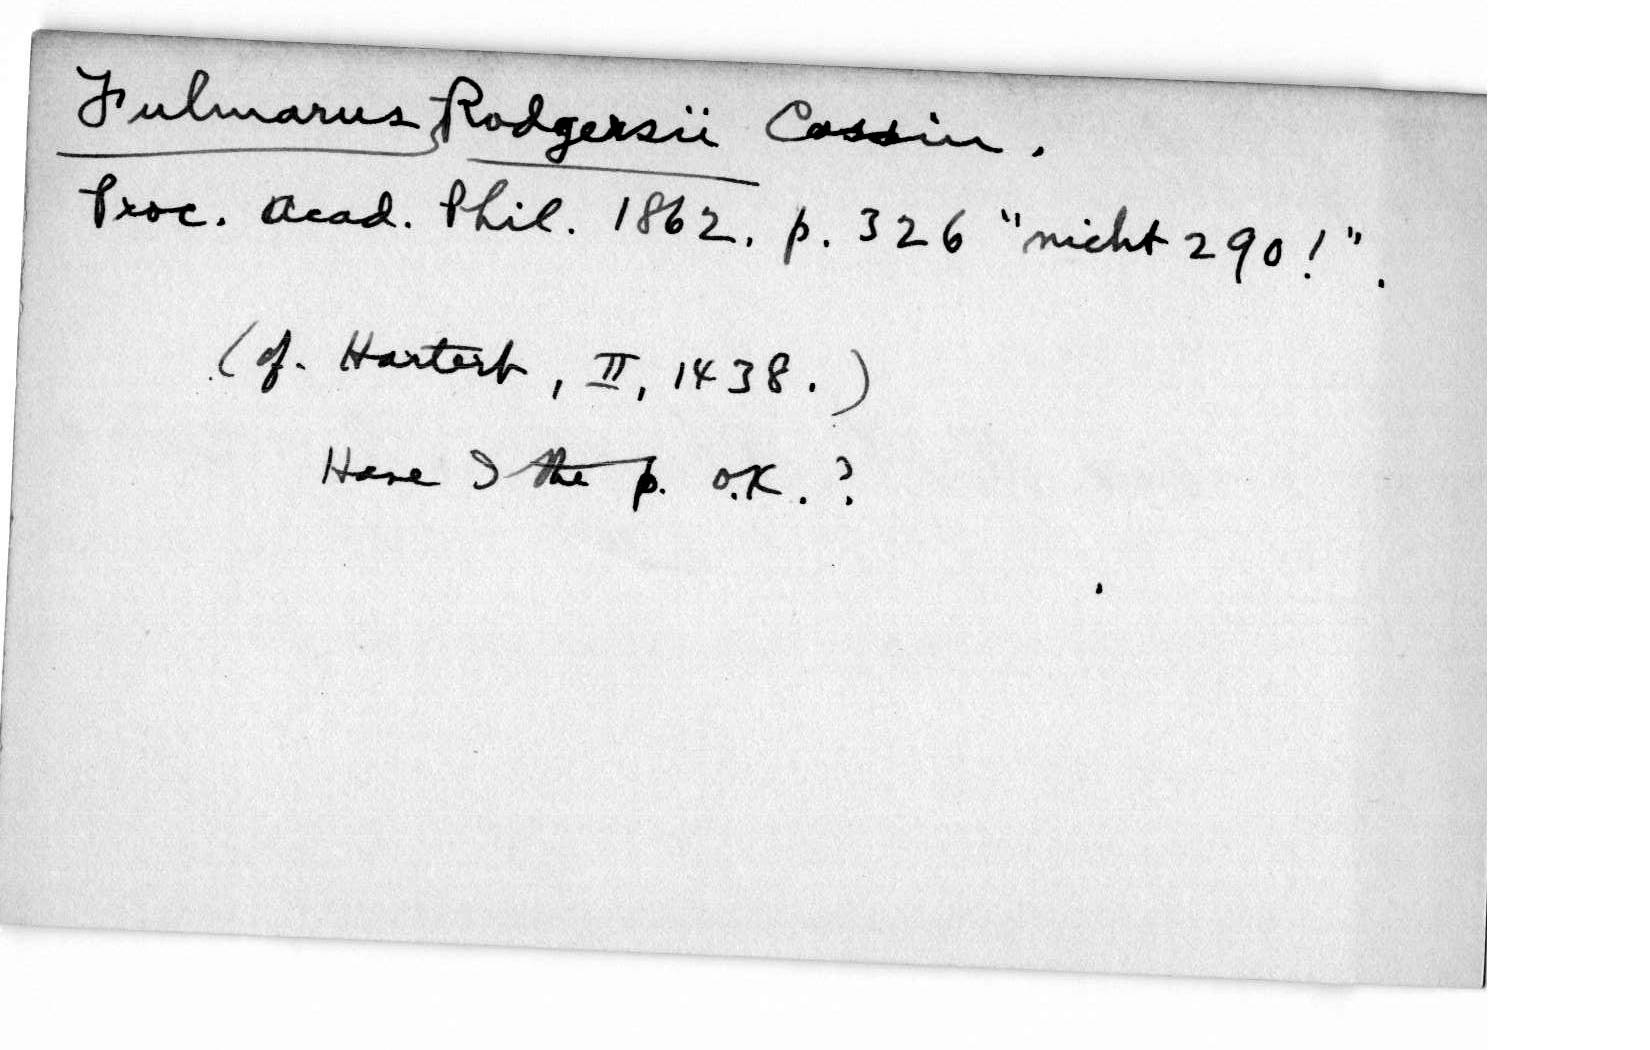 Fulmarus Rodgersii Cassin.
Proc. Acad. Phil. 1862. p. 326 "nicht 290!".
(cf. Hartert, II, 1438.)
Have I the p. O.K.?